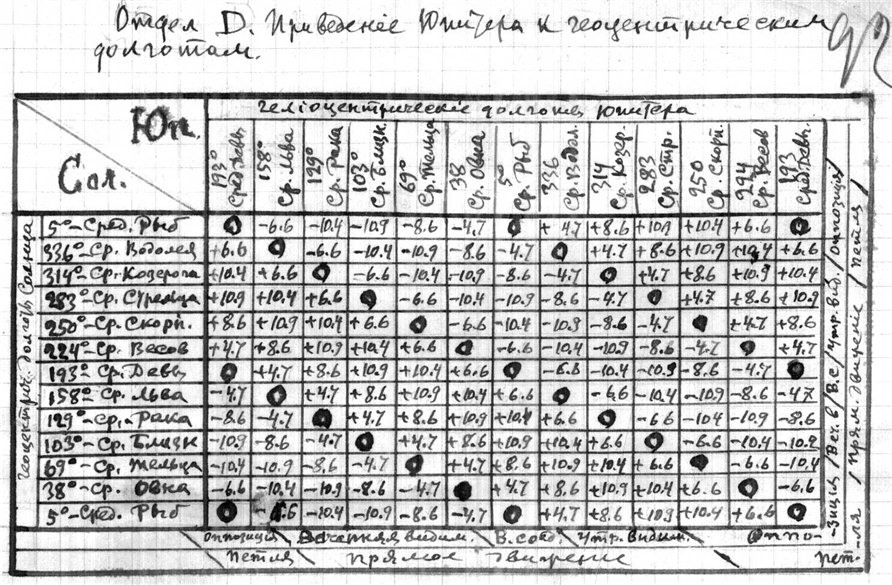 Отдел D. Приведеніе Юпитера к геоцентрическим
долготам.
92
Юп.
Сол.
геліоцентрическіе долготы Юпитера
193° Сред. Девы
158° Ср. Льва
129° Ср. Рака
103° Ср. Близн.
69° Ср. Тельца
38 Ср. Овна
5° Ср. Рыб
336 Ср. Водол.
314 Ср. Козер.
283 Ср. Стр.
250 Ср. Скорп.
224 Ср. Весов
193 Сред. Девы.
геоцентрич. долготы Солнца
5°-Сред. Рыб ● -6.6 -10.4 -10.9 -8.6 -4.7 ● +4.7 +8.6 +10.9 +10.4 +6.6 ●
336°-Ср. Водолея +6.6 ● -6.6 -10.4 -10.9 -8.6 -4.7 ● +4.7 +8.6 +10.9 +10.4 +6.6
314°-Ср. Козерога +10.4 +6.6 ● -6.6 -10.4 -10.9 -8.6 -4.7 ● +4.7 +8.6 +10.9 +10.4
283°-Ср. Стрельца +10.9 +10.4 +6.6 ● -6.6 -10.4 -10.9 -8.6 -4.7 ● +4.7 +8.6 +10.9
250°-Ср. Скорп. +8.6 +10.9 +10.4 +6.6 ● -6.6 -10.4 -10.9 -8.6 -4.7 ● +4.7 +8.6
224°-Ср. Весов +4.7 +8.6 +10.9 +10.4 +6.6 ● -6.6 -10.4 -10.9 -8.6 -4.7 ● +4.7
193°-Ср. Девы ● +4.7 +8.6 +10.9 +10.4 +6.6 ● -6.6 -10.4 -10.9 -8.6 -4.7 ●
158°-Ср. Льва -4.7 ● +4.7 +8.6 +10.9 +10.4 +6.6 ● -6.6 -10.4 -10.9 -8.6 -4.7
129°-Ср. Рака -8.6 -4.7 ● +4.7 +8.6 +10.9 +10.4 +6.6 ● -6.6 -10.4 -10.9 -8.6
103°-Ср. Близн -10.9 -8.6 -4.7 ● +4.7 +8.6 +10.9 +10.4 +6.6 ● -6.6 -10.4 -10.9
69°-Ср. Тельца -10.4 -10.9 -8.6 -4.7 ● +4.7 +8.6 +10.9 +10.4 +6.6 ● -6.6 -10.4
38°-Ср. Овна -6.6 -10.4 -10.9 -8.6 -4.7 ● +4.7 +8.6 +10.9 +10.4 +6.6 ● -6.6
5°-Сред. Рыб ● -6.6 -10.4 -10.9 -8.6 -4.7 ● +4.7 +8.6 +10.9 +10.4 +6.6 ●
-зиция / Веч. в / В.с / Утр. вид. / оппозиция
-ля / прям. движеніе / петля
оппозиція / Вечерняя видим. / В. соед. / Утр. видим. / Оппо-
петля / прямое движение / пет-